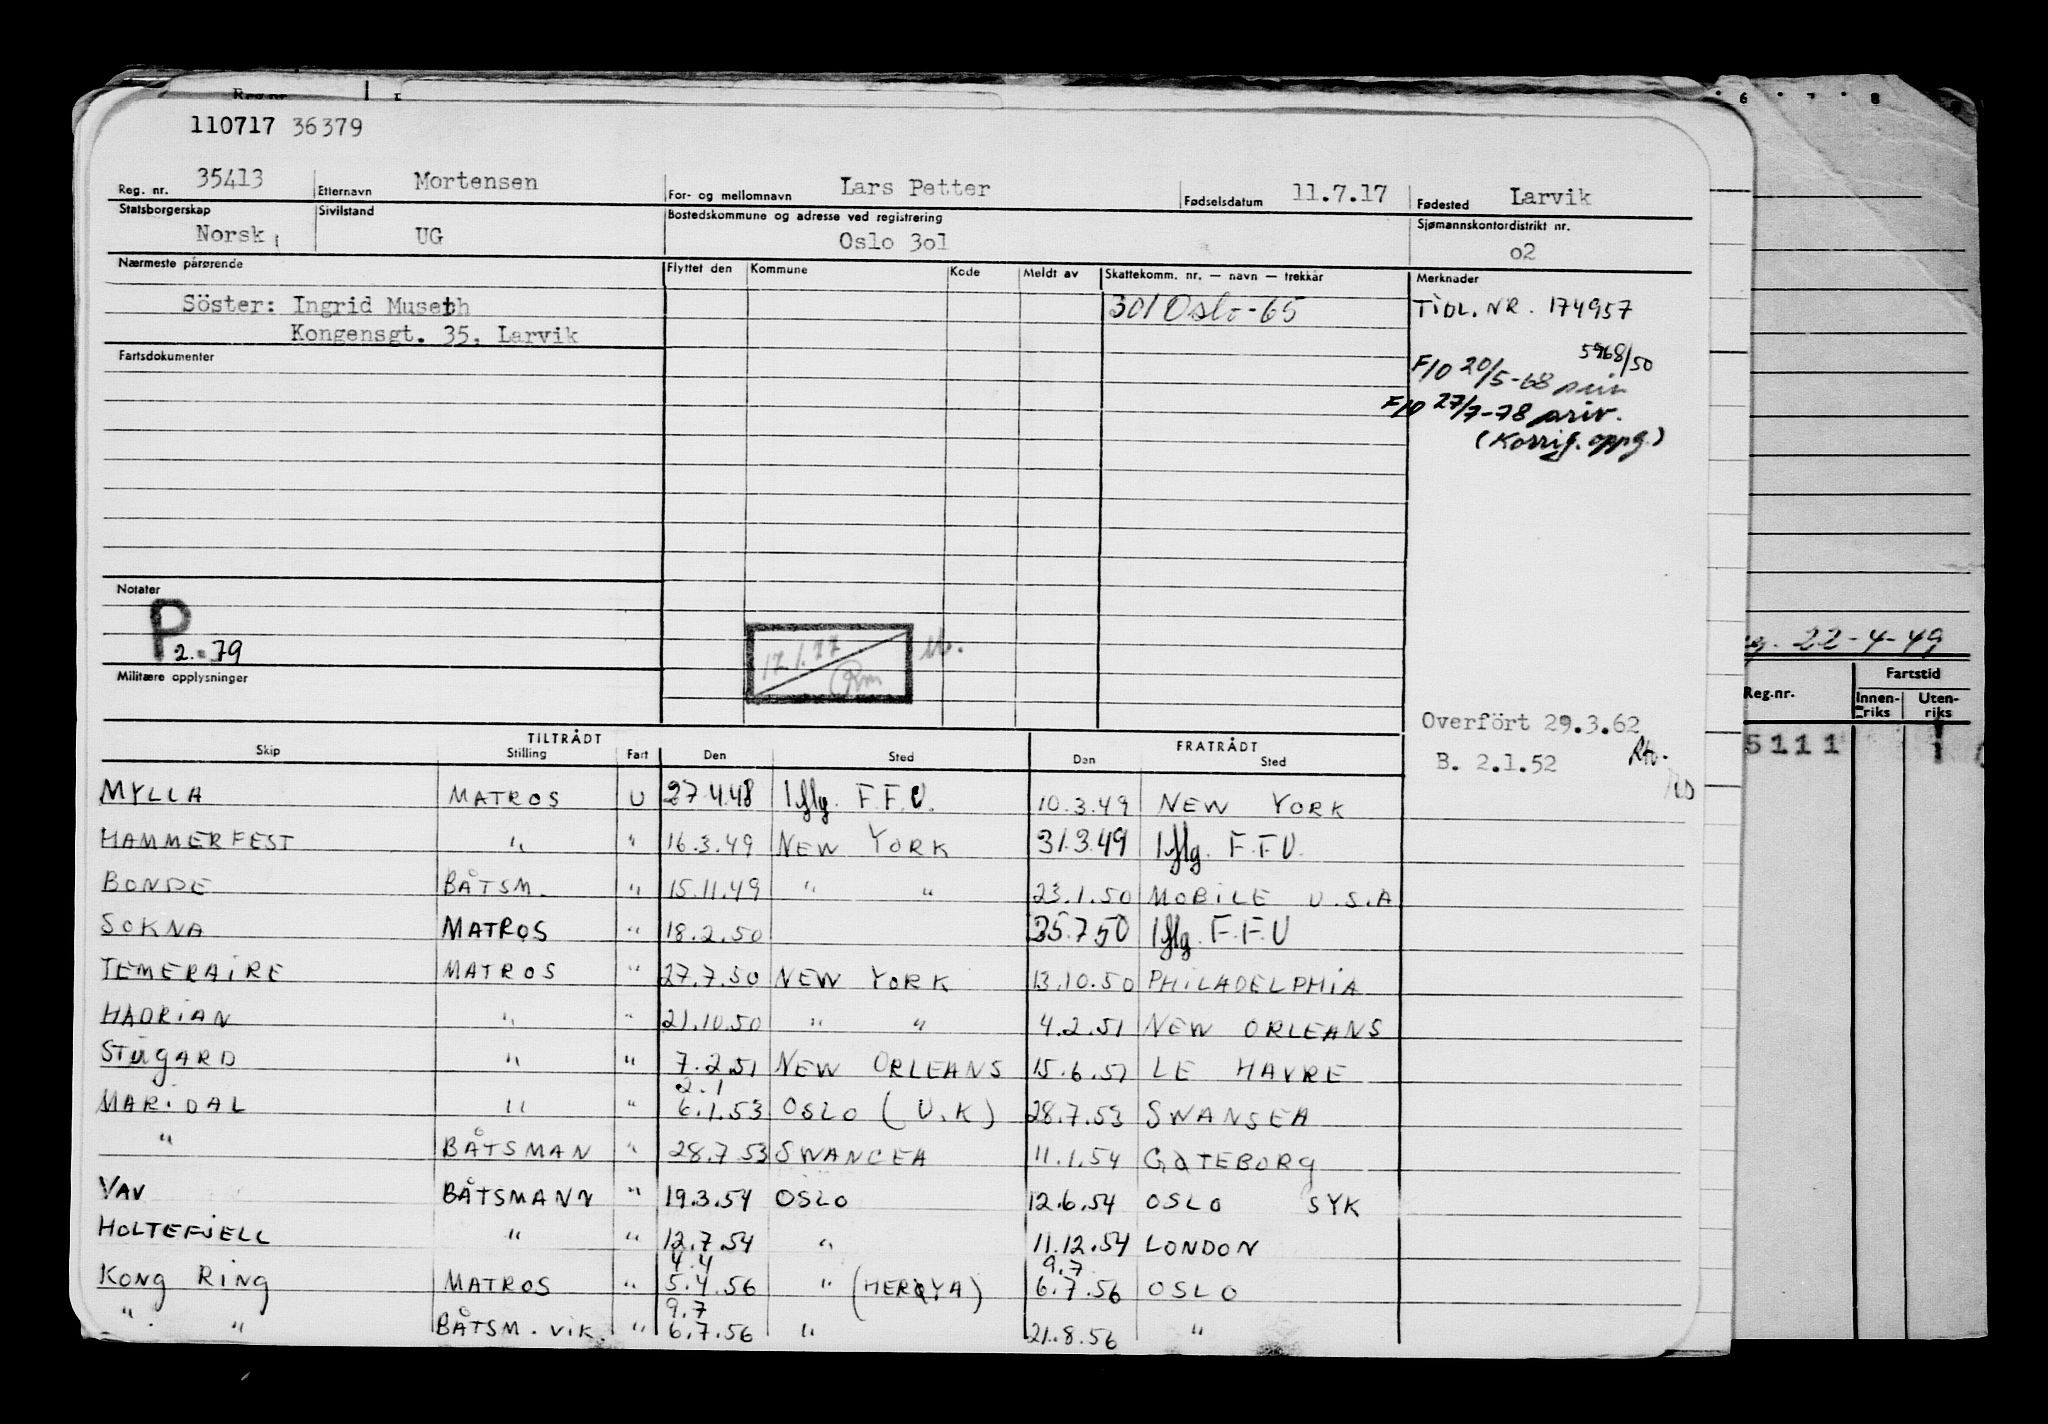 Reg.nr.
110717 36379
Reg. nr. 35413 Etternavn Mortensen For- og mellomnavn Lars Petter Fødselsdatum 11.7.17 Fødested Larvik
Statsborgerskap Sivilstand Bostedskommune og adresse ved registrering Sjømannskontordistrikt nr.
Norsk UG Oslo 3ol o2
Nærmeste pårørende Flyttet den Kommune Kode Meldt av Skattekomm. nr. — navn — trekkår Merknader
Söster: Ingrid Museth 301 Oslo-65 TIDL. NR. 174957
Kongensgt. 35, Larvik
Fartsdokumenter
F/O 20/5-68
F/O 27/7-78 priv.
(Korrig. oppg.)
Notater
P 2.-79
17.1.77
Militære opplysninger
Overfört 29.3.62
B. 2.1.52
TILTRÅDT FRATRÅDT
Skip Stilling Fart Den Sted Den Sted
MYLLA MATROS U 27.4.48 Iflg. F.F.U. 10.3.49 NEW YORK
HAMMERFEST " " 16.3.49 NEW YORK 31.3.49 Iflg. F.F.U.
BONDE BÅTSM. " 15.11.49 " " 23.1.50 MOBILE U.S.A
SOKNA MATROS " 18.2.50 25.7.50 Iflg. F.F.U
TEMERAIRE MATROS " 27.7.50 NEW YORK 13.10.50 PHILADELPHIA
HADRIAN " " 21.10.50 " " 4.2.51 NEW ORLEANS
STUGARD " " 7.2.51 NEW ORLEANS 15.6.51 LE HAVRE
2.1
MARIDAL " " 6.1.53 OSLO (U.K) 28.7.53 SWANSEA
" BÅTSMAN " 28.7.53 SWANCEA 11.1.54 GØTEBORG
VAV BÅTSMANN " 19.3.54 OSLO 12.6.54 OSLO SYK
HOLTEFJELL " " 12.7.54 " 11.12.54 LONDON
4.4 9.7
KONG RING MATROS " 5.4.56 " (HERØYA) 6.7.56 OSLO
9.7
" " BÅTSM. VIK. " 6.7.56 " 21.8.56 "
6 7 8
22-4-49
Reg.nr. Fartstid
Innenriks Utenriks
5111 1